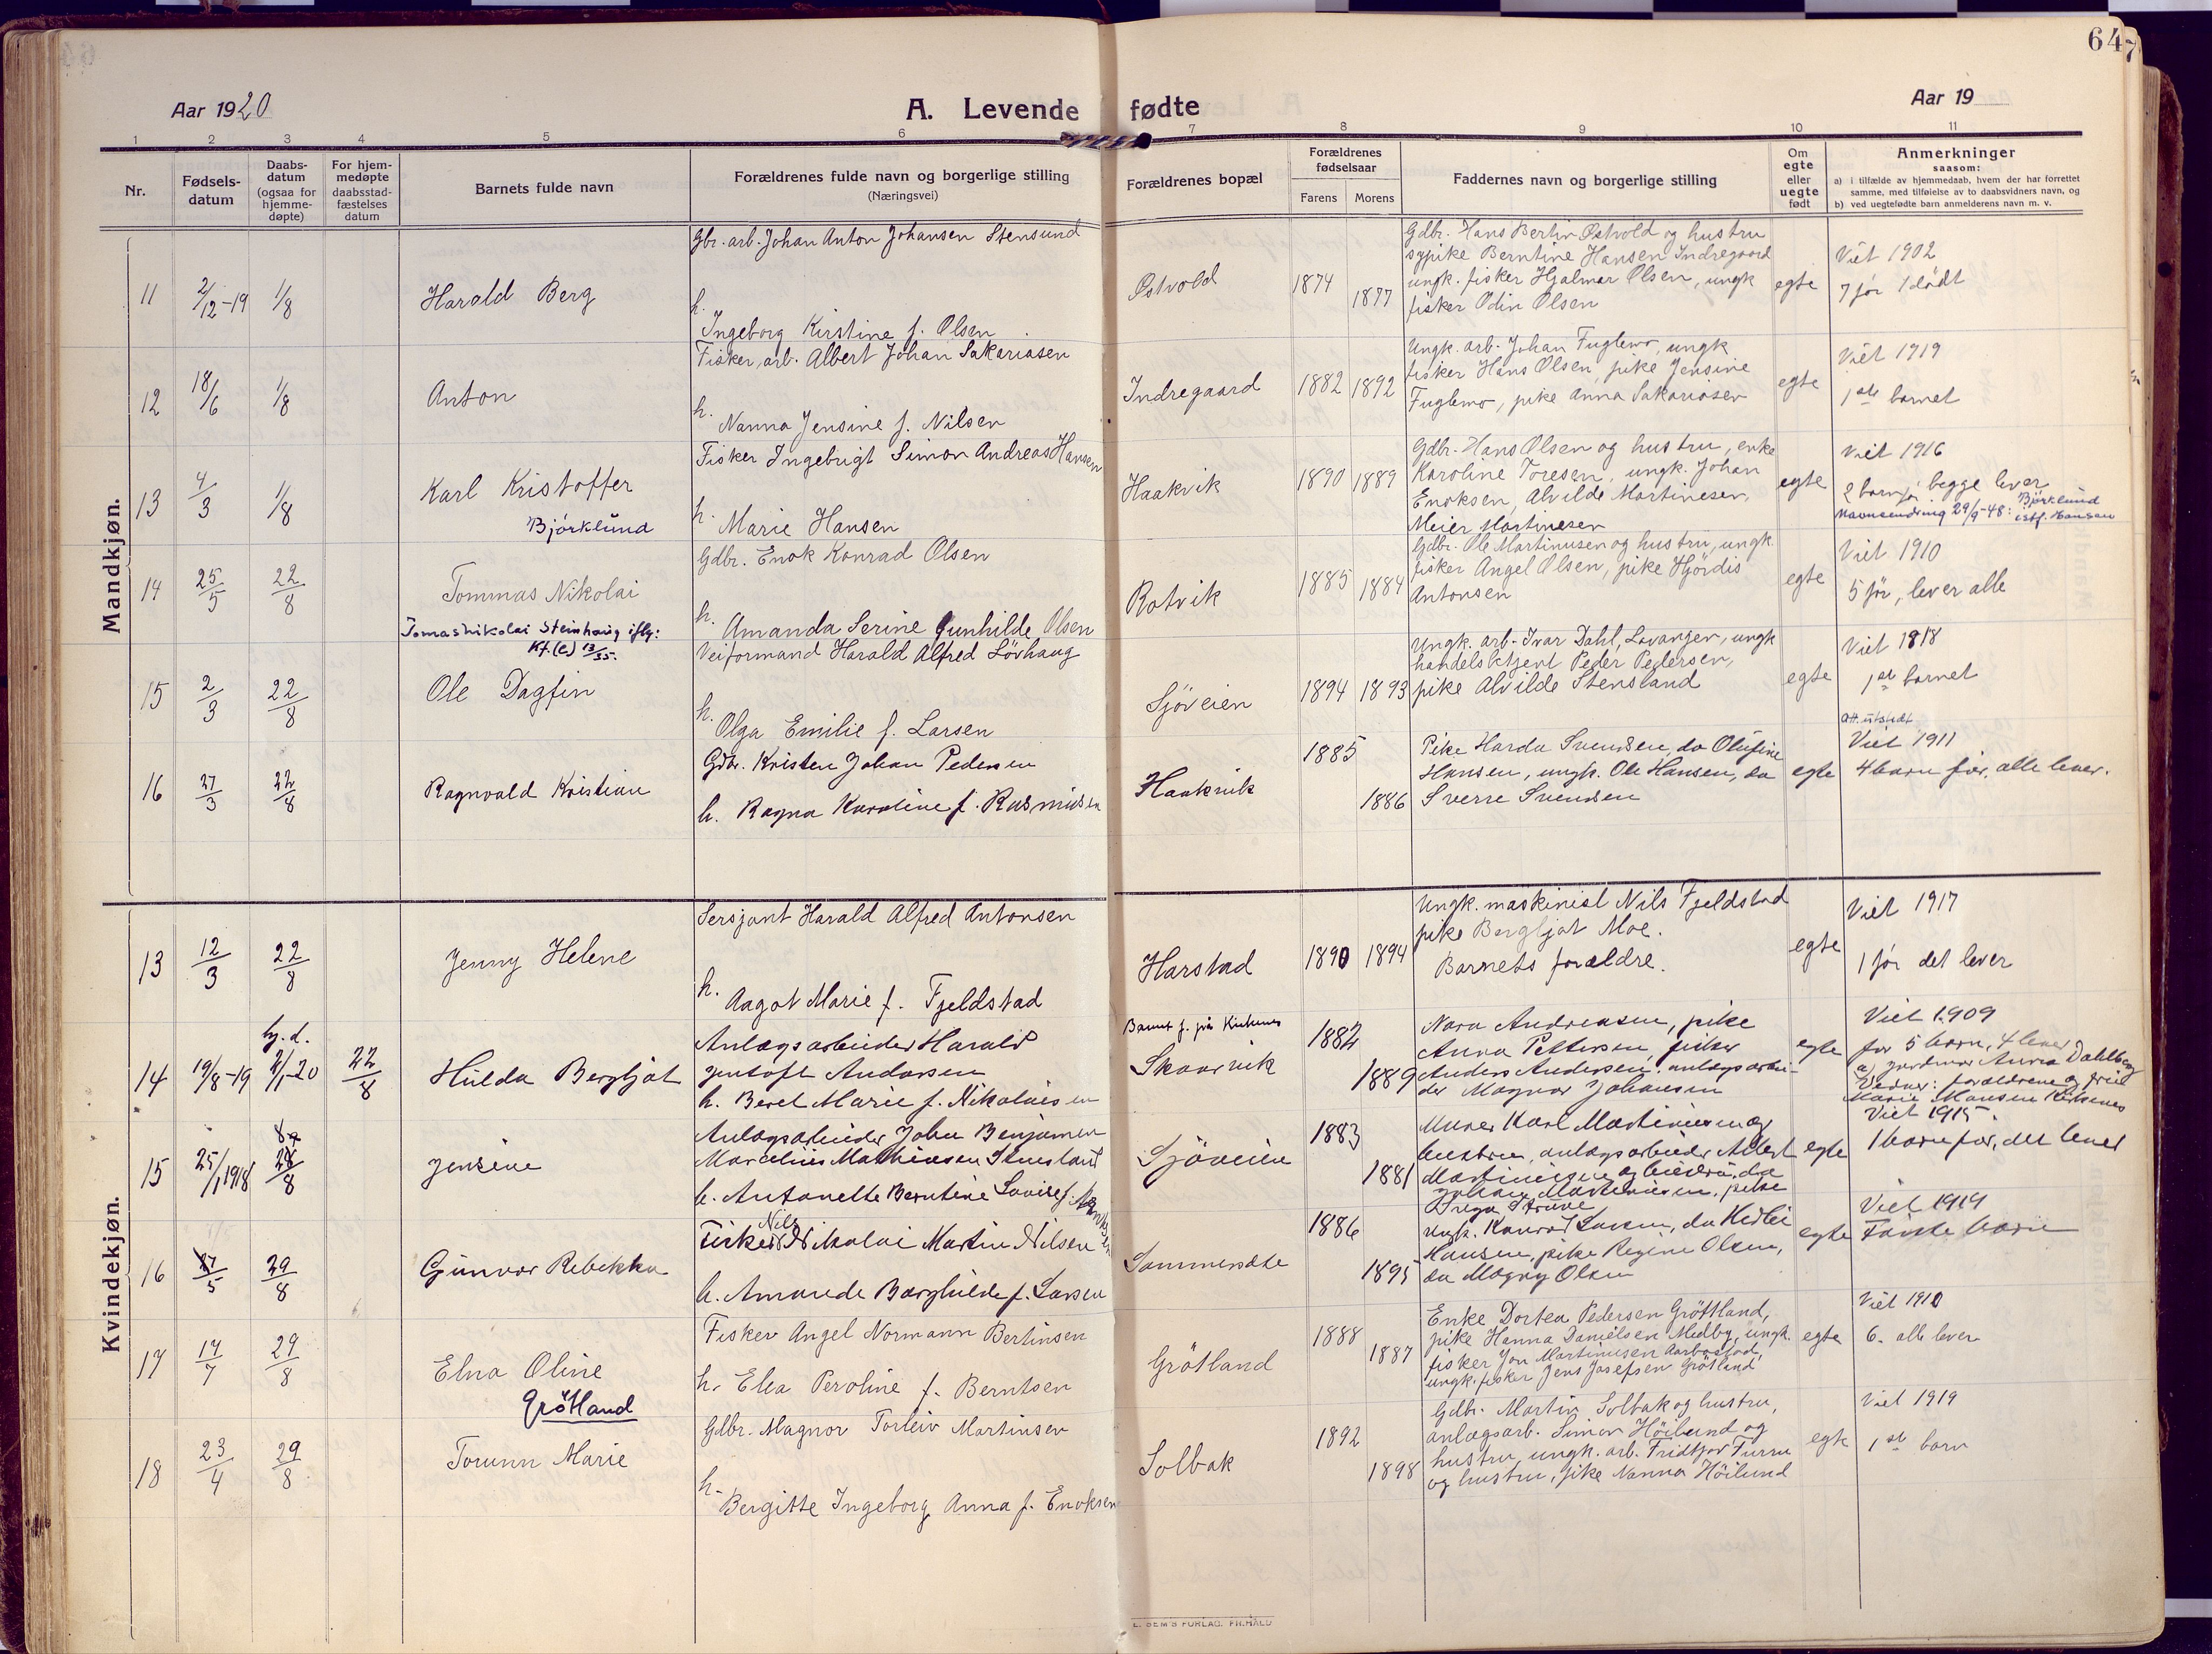 64
Aar 1920 A. Levende fødte Aar 19
1 2 3 4 5 6 7 8 9 10 11
Nr.
Fødsels-
datum
Daabs-
datum
(ogsaa for
hjemme-
døpte)
For hjem-
medøpte
daabsstad-
fæstelses
datum
Barnets fulde navn
Forældrenes fulde navn og borgerlige stilling
(Næringsvei)
Forældrenes bopæl
Forældrenes
fødselsaar
Farens Morens
Faddernes navn og borgerlige stilling
Om
egte
eller
uegte
født
Anmerkninger
saasom:
a) i tilfælde av hjemmedaab, hvem der har forrettet
samme, med tilføielse av to daabsvidners navn, og
b) ved uegtefødte barn anmelderens navn m. v.
Mandkjøn.
11 2/12-19 1/8 Harald Berg
Gbr. arb. Johan Anton Johansen Stensund
h.
Ingeborg Kirstine f. Olsen
Østvold 1874 1877
Gdbr. Hans Bertin Østvold og hustru
sypike Berntine Hansen Indregaard
ungk. fisker Hjalmar Olsen, ungk
fisker Odin Olsen
egte
Viet 1902
7 før 1 dødt
12 18/6 1/8 Anton
Fisker, arb. Albert Johan Sakariasen
h.
Nanna Jensine f. Nilsen
Indregaard 1882 1892
Ungk. arb. Johan Fuglemo, ungk
fisker Hans Olsen, pike Jensine
Fuglemo, pike Anna Sakariasen
egte
Viet 1919
1ste barnet
13 4/3 1/8 Karl Kristoffer
Bjørklund
Fisker Ingebrigt Simon Andreas Hansen
h.
Marie Hansen
Haakvik 1890 1889
Gdbr. Hans Olsen og hustru, enke
Karoline Toresen, ungk. Johan
Enoksen, Alvilde Martinesen,
Meier Martinesen
egte
Viet 1916
2 barn før begge lever
Navneendring 29/9-48: Bjørklund
istf. Hansen
14 25/5 22/8 Tommas Nikolai
Tomas Nikolai Steinhaug iflg:
Kf.(e) 13/55.
Gdbr. Enok Konrad Olsen
h.
Amanda Serine Gunhilde Olsen
Rotvik 1885 1884
Gdbr. Ole Martinusen og hustru, ungk.
fisker Angel Olsen, pike Hjørdis
Antonsen
egte
Viet 1910
5 før, lever alle
15 2/3 22/8 Ole Dagfin
Veiformand Harald Alfred Løvhaug
h.
Olga Emilie f. Larsen
Sjøveien 1894 1893
Ungk. arb. Ivar Dahl, Lavangen, ungk
handelsbetjent Peder Pedersen,
pike Alvilde Stensland
egte
Viet 1918
1ste barnet
16 27/3 22/8 Ragnvald Kristian
Gdbr. Kristen Johan Pedersen
h. Ragna Karoline f. Rasmussen
Haakvik 1885 1886
Pike Harda Svendsen, do Olufine
Hansen, ungk. Ole Hansen, do
Sverre Svendsen
egte
Att. utstedt
Viet 1911
4 barn før, alle lever.
Kvindekjøn.
13 12/3 22/8 Jenny Helene
Sersjant Harald Alfred Antonsen
h.
Aagot Marie f. Fjeldstad
Harstad 1890 1894
Ungk. maskinist Nils Fjeldstad
pike Bergljot Moe.
Barnets forældre.
egte
Viet 1917
1 før det lever
14 19/8-19 hj.d. 2/1-20 22/8 Hulda Bergljot
Anlægsarbeider Harald
Jentoft Andersen
h. Beret Marie f. Nikolaisen
Barnet f. paa Kirkenes
Skaarvik 1882 1889
Nora Andreasen, pike
Anna Pettersen, fisker
Anders Andersen, anlægsarbei-
der Magnor Johansen
egte
Viet 1909
før 5 barn, 4 lever
a) jordmor Anna Dahlberg
Vidner: forældrene og frøil
Marie Hansen Kirkenes
15 25/1 1918 22/8 Jensine
Anlægsarbeider Johan Benjamin
Marcelius Mathiasen Stensland
h. Antonette Berntine Lovise f.
Sjøveien 1883 1881
Murer Karl Martinusen og
hustru, anlægsarbeider Albert
Martinusen og hustru, do
Johan Martinusen, pike
egte
Viet 1915.
1 barn før, det lever
16 27/5 29/8 Gunvor Rebekka
Fisker Nils Nikolai Martin Nilsen
h. Amunde Borghilde f. Larsen
Sommersæte 1886 1895
Ungk. Konrad Larsen, do Hedlei
Hansen, pike Regine Olsen,
do Magny Olsen
egte
Viet 1919
Første barn
17 17/7 29/8 Elna Oline
Grøtland
Fisker Angel Normann Bertinsen
h. Elea Peroline f. Berntsen
Grøtland 1888 1887
Enke Dortea Pedersen Grøttland,
pike Hanna Danielsen Medby, ungk.
fisker Jon Martinusen Aarbostad,
ungk. fisker Jens Josefsen Grøtland
egte
Viet 1910
6. alle lever
18 23/4 29/8 Torunn Marie
Gdbr. Magnor Torleiv Martinsen
h.
Bergitte Ingeborg Anna f. Enoksen
Solbak 1892 1898
Gdbr. Martin Solbak og hustru,
anlægsarb. Simon Høilund og
hustru, ungk. arb. Fridtjov Furu
og hustru, pike Nanna Høilund
egte
Viet 1919
1ste barn
E. SEM'S FORLAG, FR.HALD